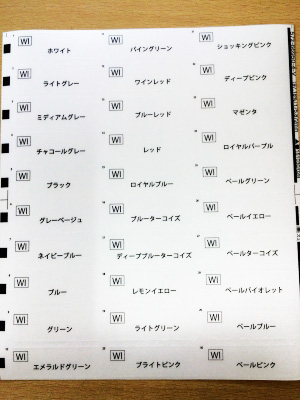 WI
ホワイト
WI
ライトグレー
WI
ミディアムグレー
WI
チャコールグレー
WI
ブラック
WI
グレーベージュ
WI
ネイビーブルー
WI
ブルー
WI
グリーン
WI
エメラルドグリーン
WI
パイングリーン
WI
ワインレッド
WI
ブルーレッド
WI
レッド
WI
ロイヤルブルー
WI
ブルーターコイズ
WI
ディープブルーターコイズ
WI
レモンイエロー
WI
ライトグリーン
WI
ブライトピンク
WI
ショッキングピンク
WI
ディープピンク
WI
マゼンタ
WI
ロイヤルパープル
WI
ペールグリーン
WI
ペールイエロー
WI
ペールターコイズ
WI
ペールバイオレット
WI
ペールブルー
WI
ペールピンク